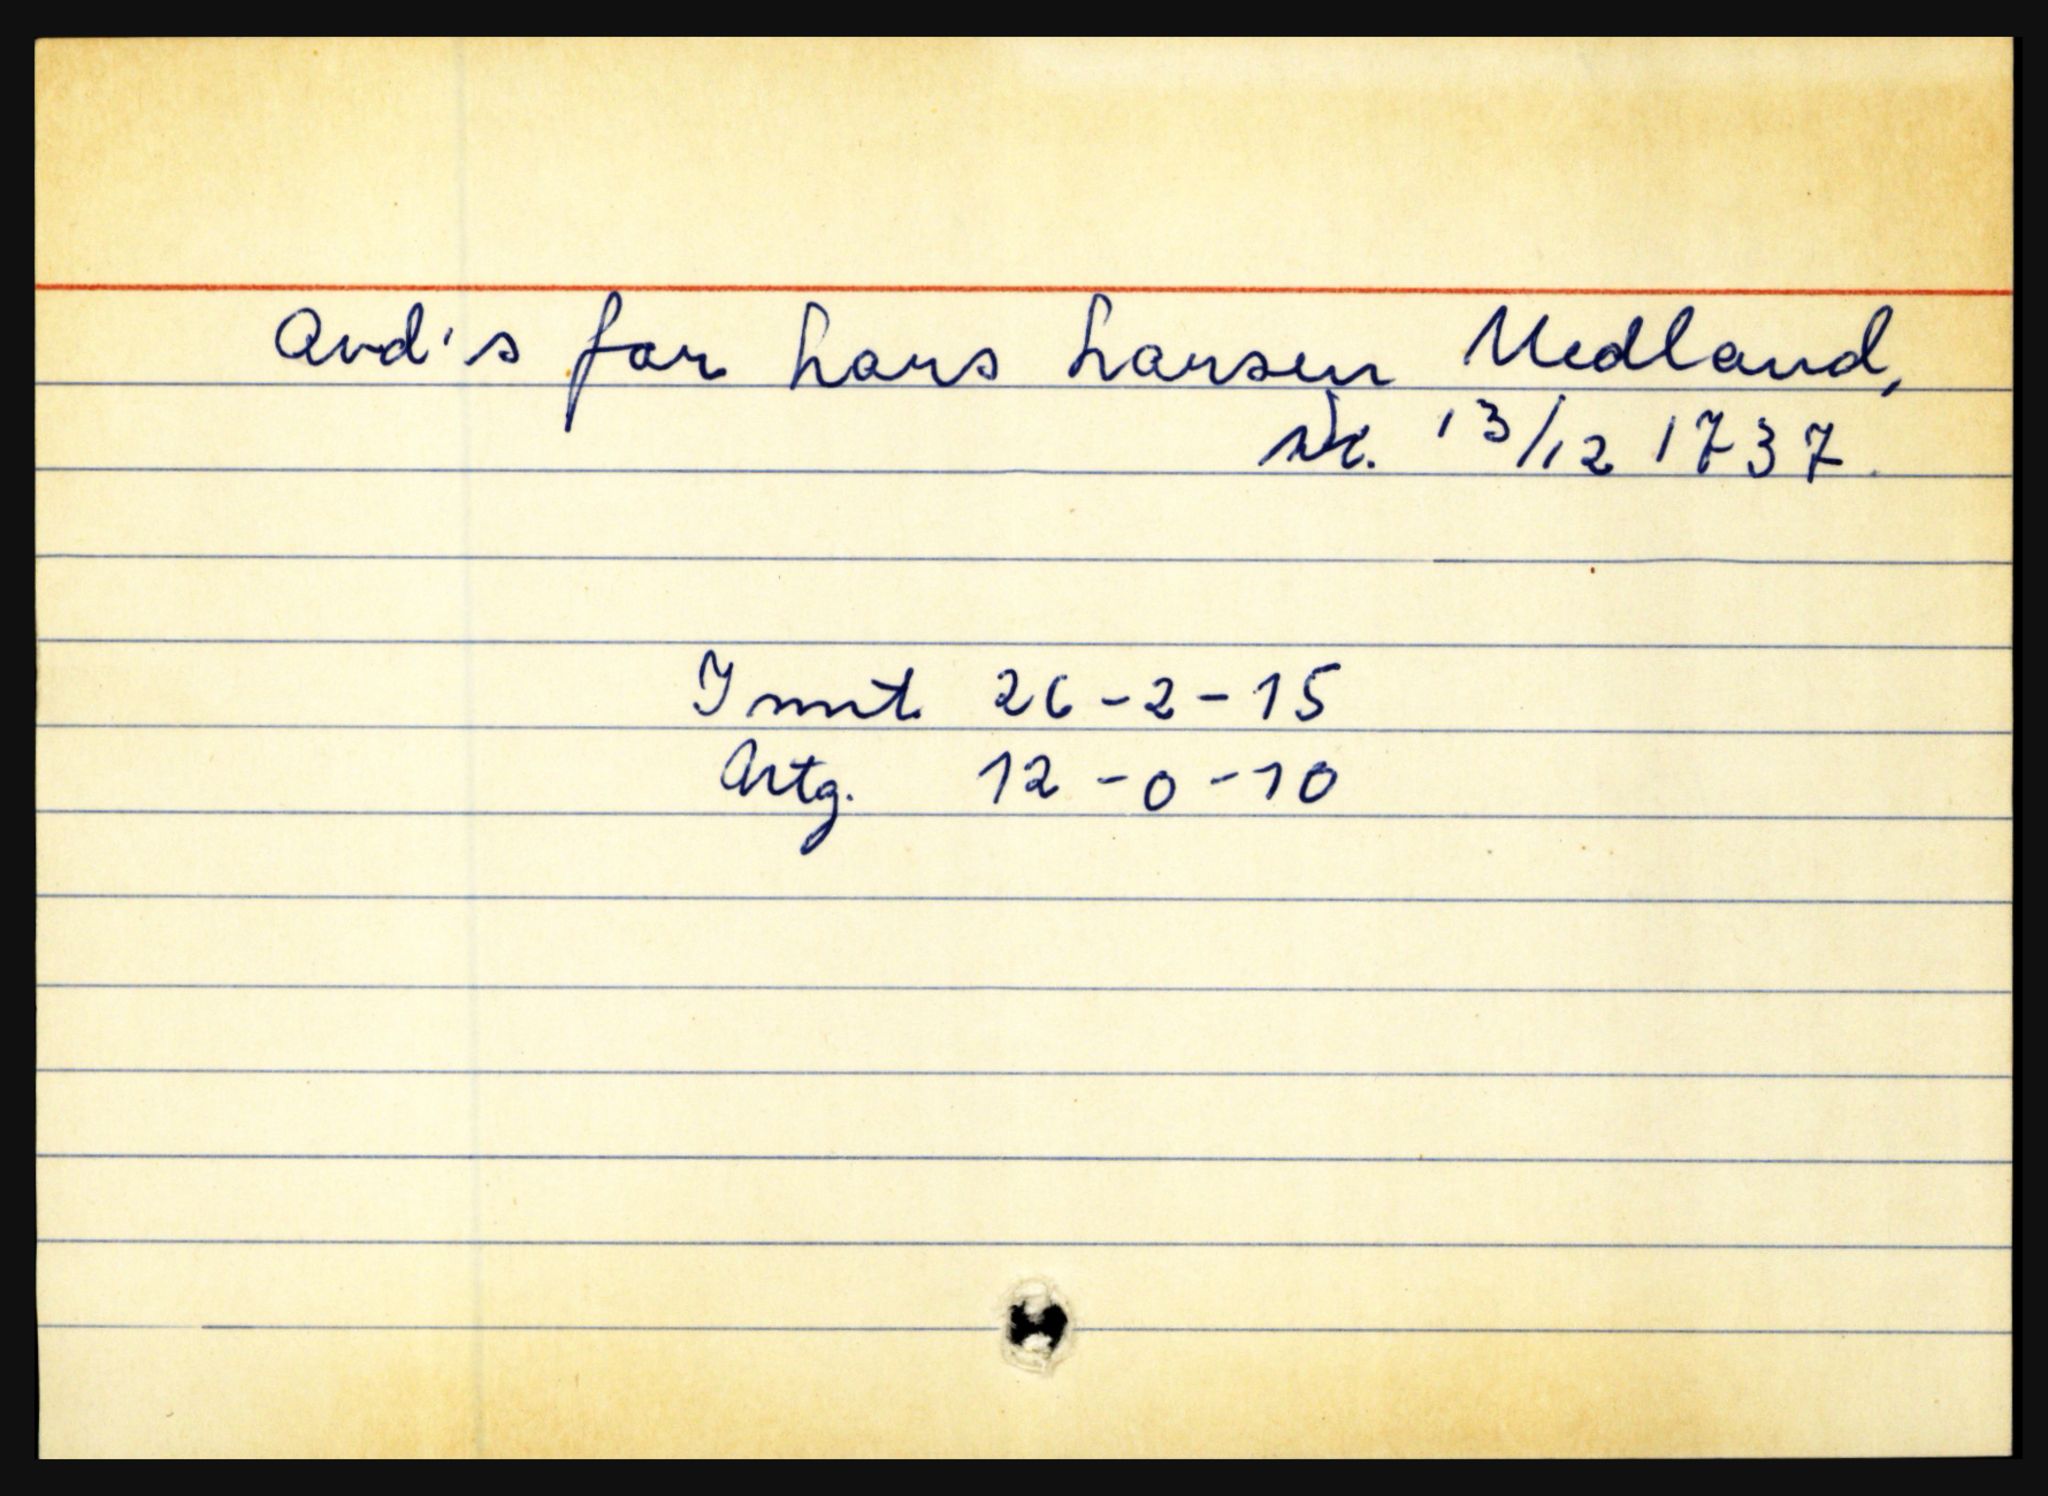 Avd's far Lars Larsen Medland,
sk. 13/12 1737.
Innt. 26-2-15
Avtg. 12-0-10